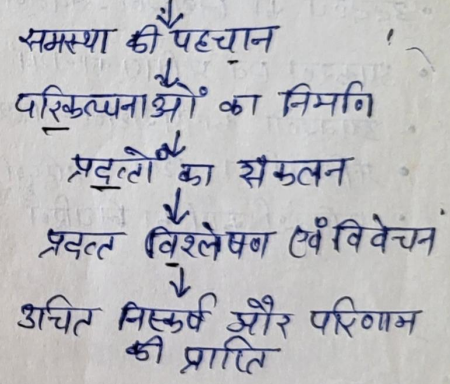 समस्या की पहचान
परिकल्पनाओं का निर्माण
प्रदत्तों का संकलन
प्रदत्त विश्लेषण एवं विवेचन
उचित निष्कर्ष और परिणाम
की प्राप्ति